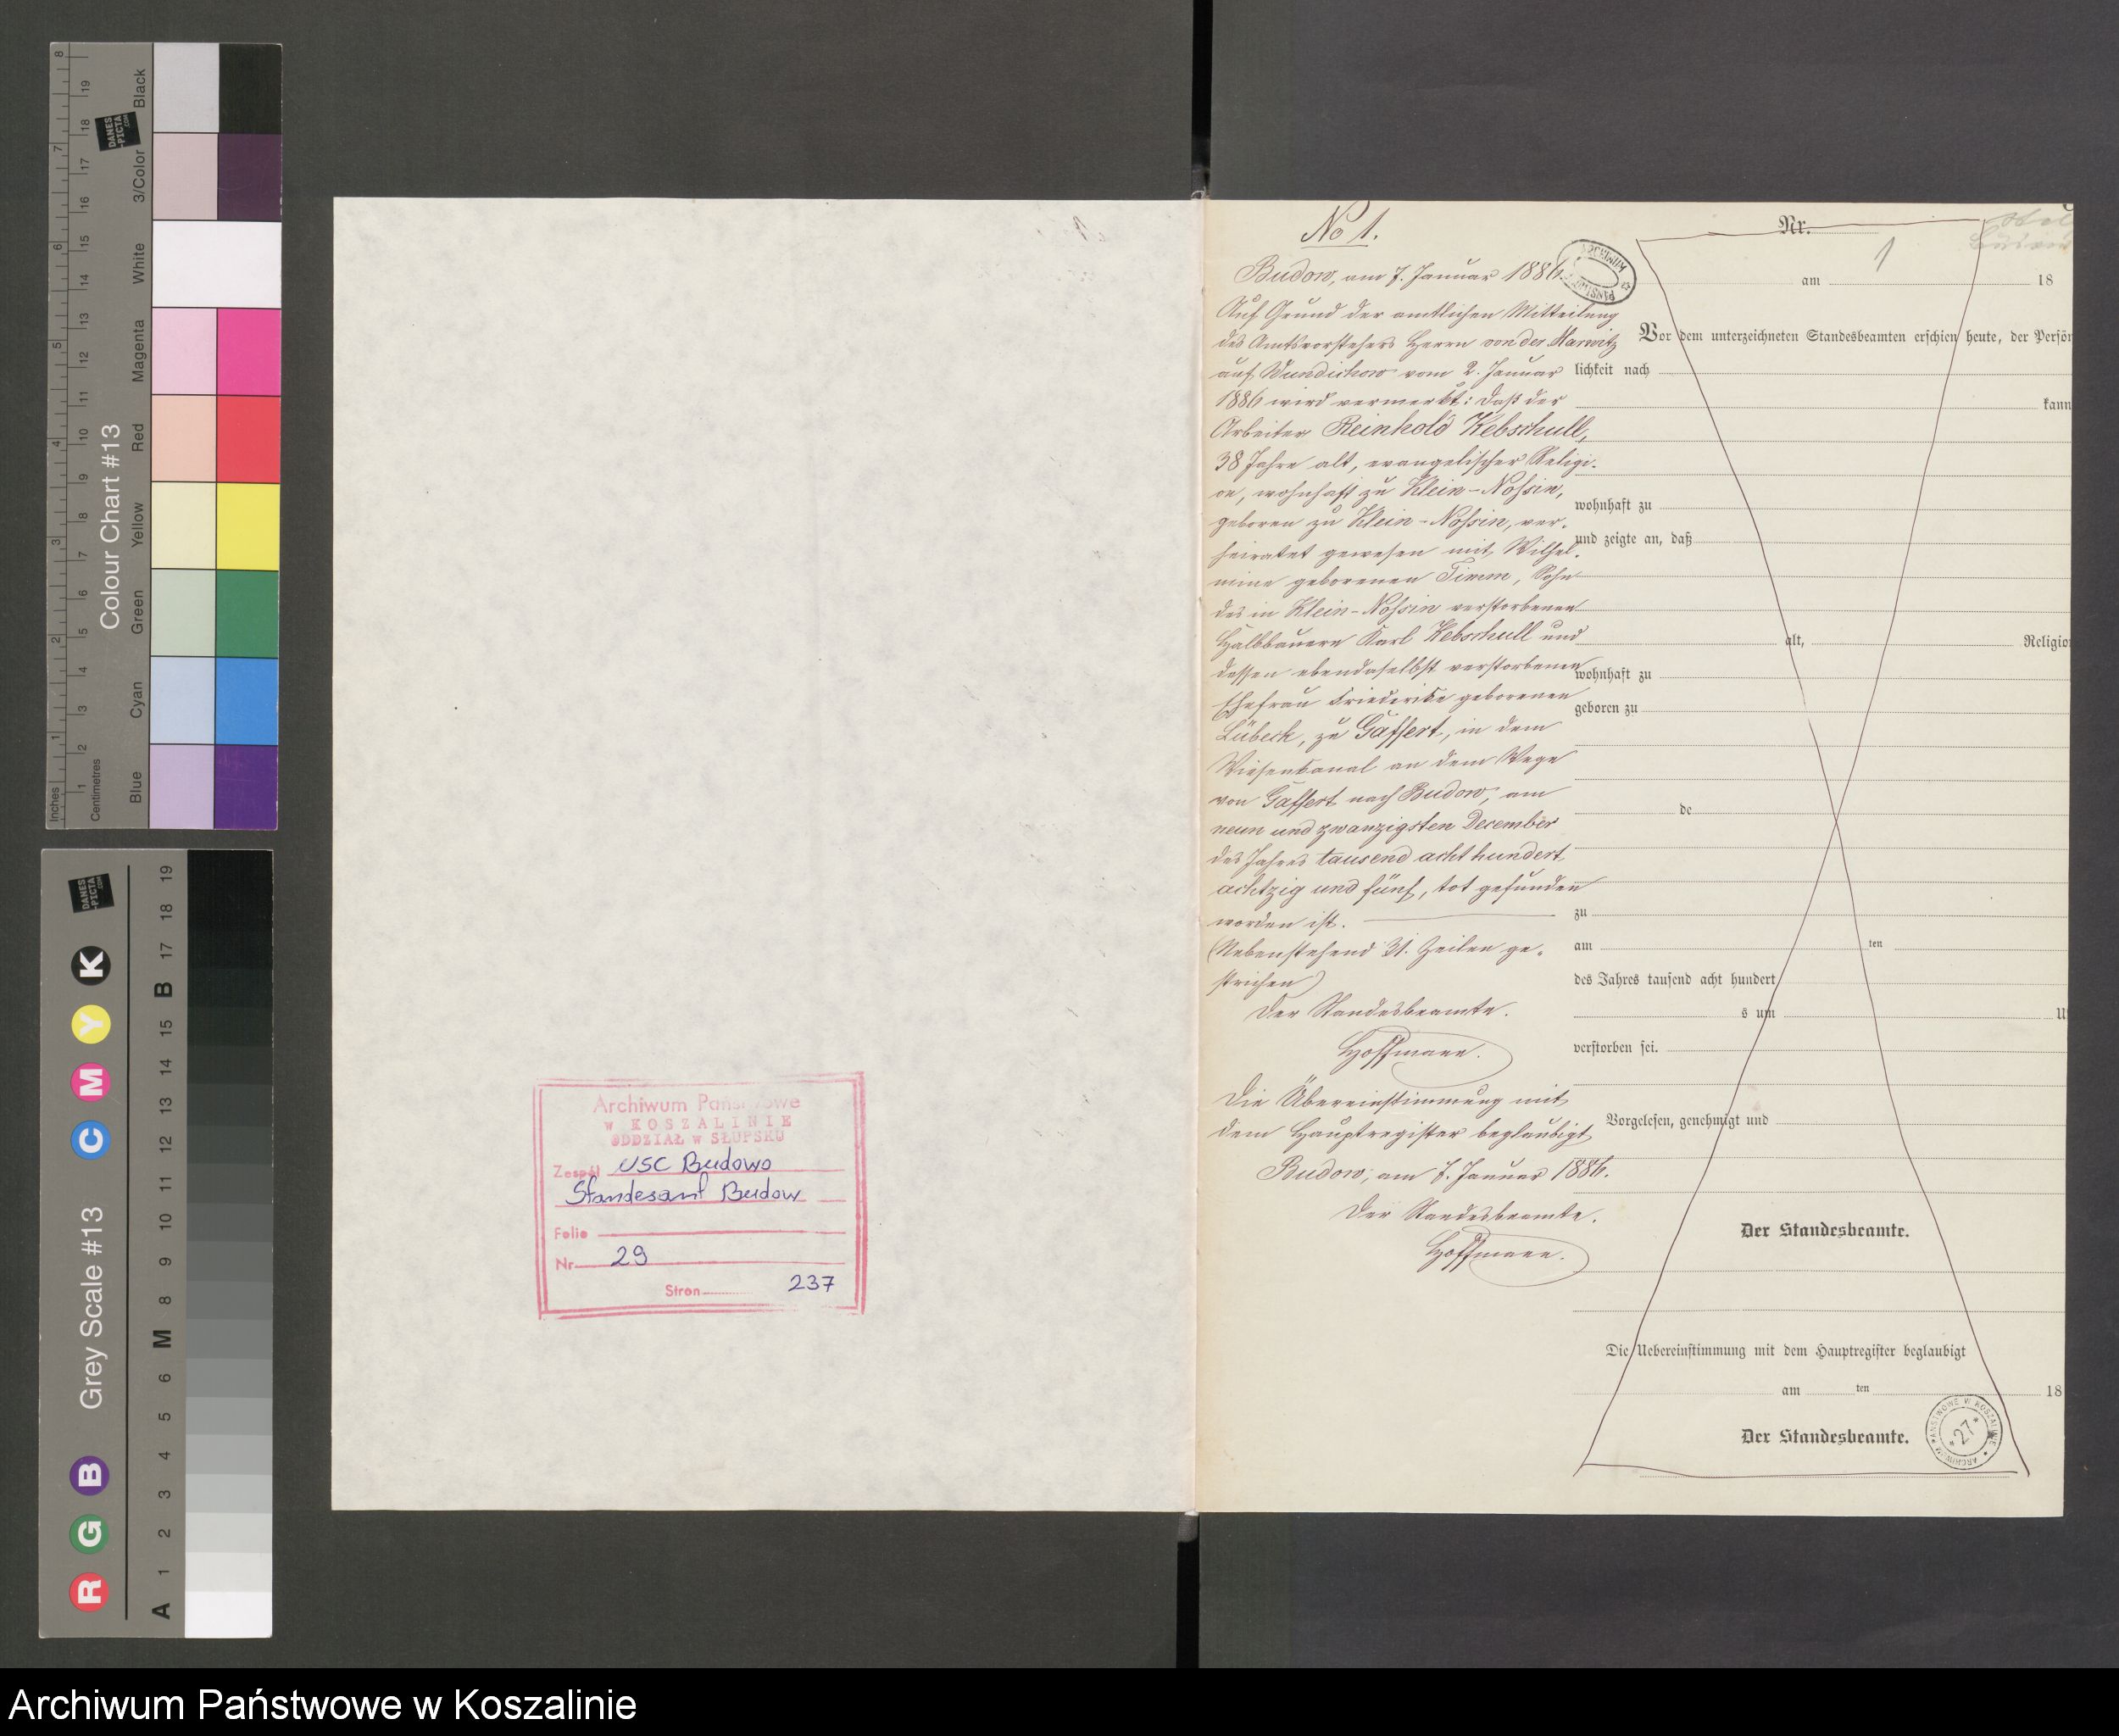 Inches
Centimetres
Colour Chart #13
Blue
Cyan
Green
Yellow
Red
Magenta
White
3/Color
Black
DANES
-PICTA
.COM
Grey Scale #13
R G B C M Y K
A 1 2 3 4 5 6 M 8 9 10 11 12 13 14 15 B 17 18 19
Archiwum Państwowe
W KOSZALINIE
ODDZIAŁ w SŁUPSKU
Zespół USC Budowo
Standesamt Budow
Folio
Nr 29
Stron 237
No 1.
Budow, am 7. Januar 1886.
Auf Grund der amtlichen Mitteilung
des Amtsvorstehers Herrn von der Marwitz
auf Wundichow vom 2. Januar
1886 wird vermerkt: daß der
Arbeiter Reinhold Kebschull,
38 Jahre alt, evangelischer Religi-
on, wohnhaft zu Klein-Nossin,
geboren zu Klein-Nossin, ver-
heiratet gewesen mit Wilhel-
mine geborenen Timm, Sohn
des in Klein-Nossin verstorbenen
Halbbauern Karl Kebschull und
dessen ebendaselbst verstorbenen
Ehefrau Friederike geborenen
Lübeck, zu Gaffert, in dem
Wiesenkanal an dem Wege
von Gaffert nach Budow, am
neun und zwanzigsten December
des Jahres tausend acht hundert
achtzig und fünf, tot gefunden
worden ist.
(Nebenstehend 31. Zeilen ge-
strichen)
Der Standesbeamte.
Hoffmann.
Die Übereinstimmung mit
dem Hauptregister beglaubigt
Budow, am 7. Januar 1886.
Der Standesbeamte.
Hoffmann.
Nr.
1
am 18
Vor dem unterzeichneten Standesbeamten erschien heute, der Persön
lichkeit nach
kann
wohnhaft zu
und zeigte an, daß
alt, Religio
wohnhaft zu
geboren zu
de
zu
am ten
des Jahres tausend acht hundert
s um U
verstorben sei.
Vorgelesen, genehmigt und
Der Standesbeamte.
Die Uebereinstimmung mit dem Hauptregister beglaubigt
am ten 18
Der Standesbeamte.
ARCHIWUM PAŃSTWOWE W KOSZALINIE
*27*
Archiwum Państwowe w Koszalinie